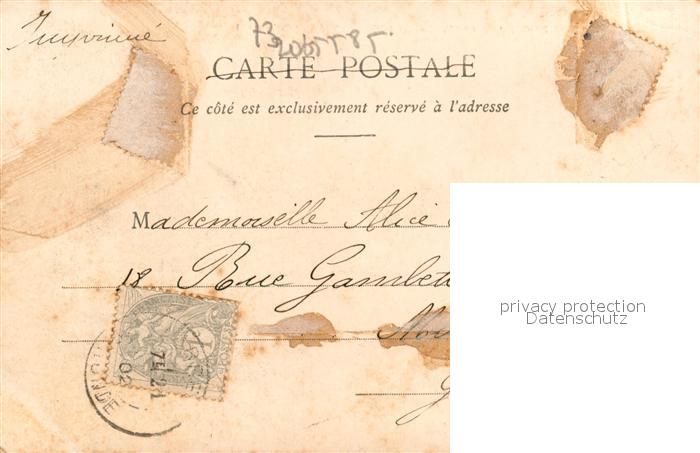 Imprimé
CARTE POSTALE
Ce côté est exclusivement réservé à l'adresse
Mademoiselle Alice
18 Rue Gambett
privacy protection
Datenschutz
7E 21
02